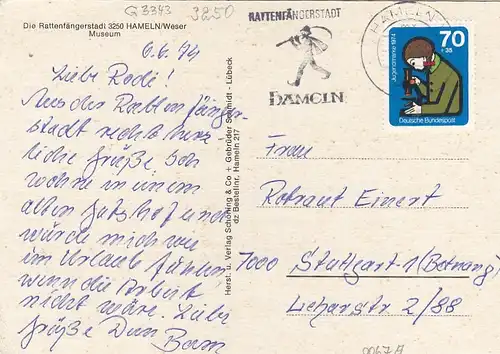 G 3343 3250
Die Rattenfängerstadt 3250 HAMELN/Weser
Museum
6.6.74
Liebe Rodi!
Aus der Rattenfänger-
stadt recht herz-
liche Grüße. Ich
wohne in einem
alten Gutshof und
würde mich wie
im Urlaub fühlen
wenn die Arbeit
nicht wäre. Liebe
Grüße Dein
Herst. u. Verlag Schöning & Co + Gebrüder Schmidt - Lübeck
dz Bestellnr. Hameln 217
RATTENFÄNGERSTADT
HAMELN
HAMELN
70
+35
Jugendmarke 1974
Deutsche Bundespost
Frau
Rotraut Einert
7000 Stuttgart-1 (Botnang)
2/88
0067A